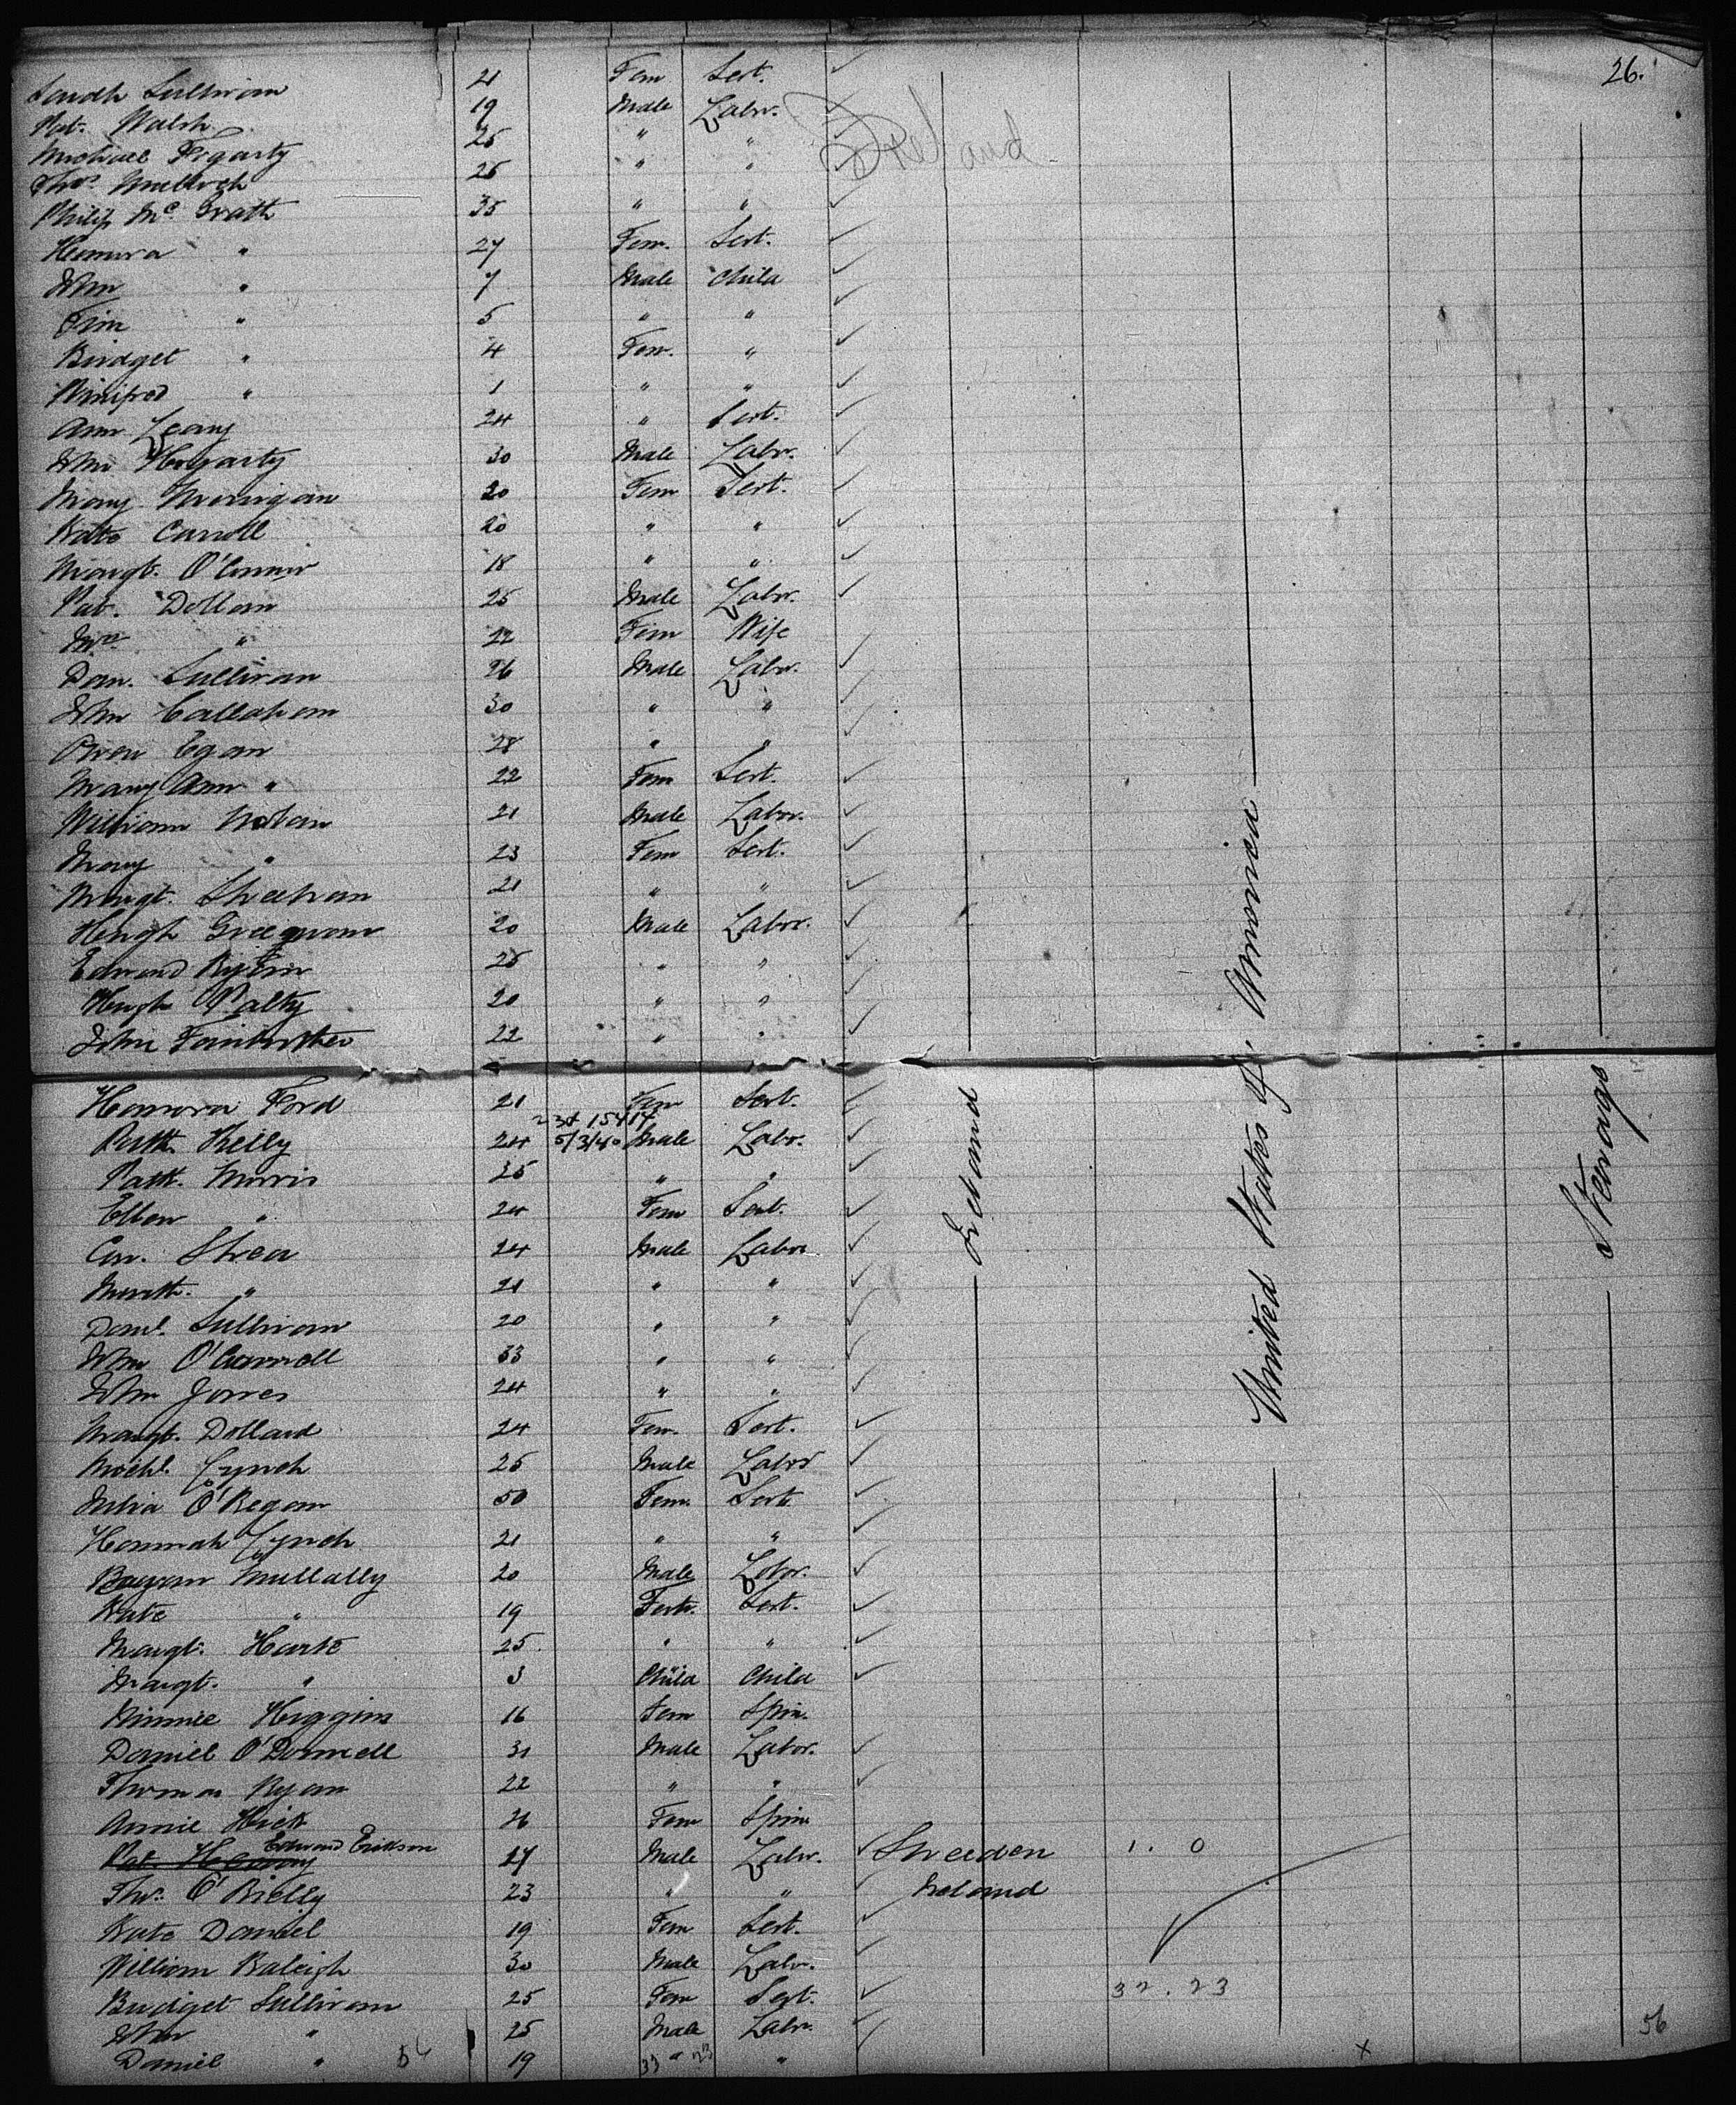 26.
Sarah Sullivan 21 Fem Sert.
Pat. Walsh 19 Male Labr.
Michael Fogarty 25 " "
Ireland
Thos 25 " "
Philip Mc Grath 35 " "
Honora " 27 Fem. Sert.
John " 7 Male Child
Tim " 5 " "
Bridget " 4 Fem. "
Winifred " 1 " "
Ann Leary 24 " Sert.
John Hogarty 30 Male Labr.
Mary 20 Fem Sert.
Kate Carroll 20 " "
Margt. O'Connor 18 " "
Pat. Dollan 25 Male Labr.
Mrs " 22 Fem Wife
Dan. Sullivan 26 Male Labr.
John Callahan 30 " "
Owen Egan 28 " "
Mary Ann " 22 Fem Sert.
William Nolan 21 Male Labor.
Mary " 23 Fem Sert.
Margt. Sheehan 21 " "
Hugh 20 Male Labor.
Edmund 25 " "
Hugh 20 " "
John Fairbrother 22 " "
Honora Ford 21 Fem Sert.
Patk. Kelly 24 5/3/40 Male Labr.
Patk. Morris 25 " "
Ellen " 24 Fem Sert.
Con. Shea 24 Male Labor
" 21 " "
Danl. Sullivan 20 " "
John O'Connell 33 " "
John Jones 24 " "
Margt. Dollard 24 Fem. Sert.
Michl. Lynch 25 Male Labor
Julia O'Regan 50 Fem. Sert.
Hannah Lynch 21 " "
Mullally 20 Male Labor.
Kate " 19 Fem. Sert.
Margt. Harte 25 " "
Margt. " 3 Child Child
Minnie Higgins 16 Fem Spin.
Daniel O'Donnell 31 Male Labor.
Thomas Ryan 22 " "
Annie Hick 26 Fem Spin
Edmund Erikson
Pat. 27 Male Labr. Sweeden 1. 0
Thos. O'Rielly 23 " " Ireland
Kate Daniel 19 Fem Sert.
William Raleigh 30 Male Labr.
Bridget Sullivan 25 Fem Sert. 32. 23
John " 25 Male Labr.
Daniel " 19 33 " 23 "
56
Ireland
United States of America
Steerage